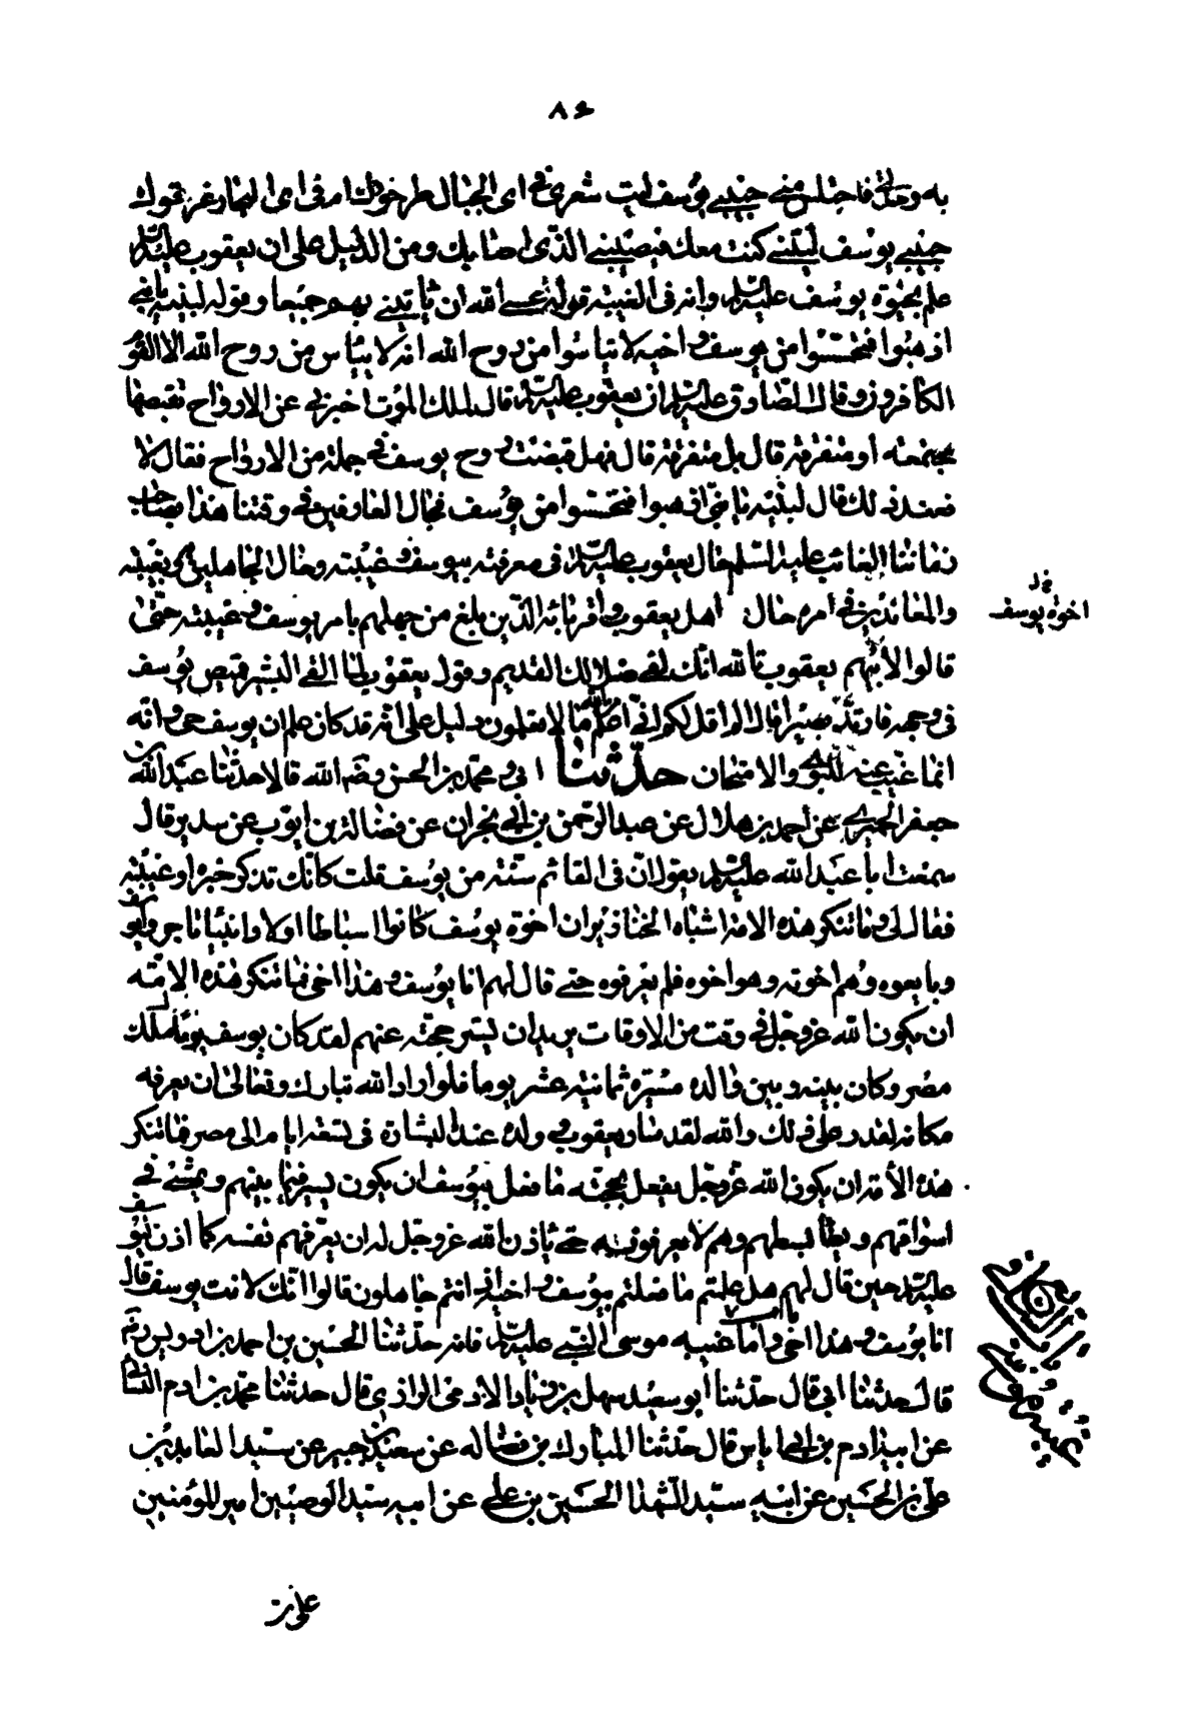 ٨٤
به وحدك فاختلس مني حبيبي يوسف ليت شعري في اى الجبال طرحوك ام في اى البحار غرقوك
حبيبي يوسف ليتني كنت معك فيصيبني الذى اصابك ومن الدليل على ان يعقوب عليه السلم
علم بحيوة يوسف عليه السلم وانه في الغيبة قوله عسى الله ان ياتيني بهم جميعا وقوله لبنيه يا بني
اذهبوا فتحسسوا من يوسف واخيه ولا تيأسوا من روح الله انه لا ييأس من روح الله الا القوم
الكافرون وقال الصادق عليه السلم ان يعقوب عليه السلم قال لملك الموت اخبرني عن الارواح تقبضها
مجتمعة او متفرقة قال بل متفرقة قال فهل قبضت روح يوسف في جملة من الارواح فقال لا
فعند ذلك قال لبنيه يا بني اذهبوا فتحسسوا من يوسف فحال العارفين في وقتنا هذا بصاحب
زماننا الغائب عليه السلم حال يعقوب عليه السلم في معرفته بيوسف وغيبته وحال الجاهلين به وبغيبته
والمعاندين في امره حال اهل يعقوب واقربائه الذين بلغ من جهلهم بامر يوسف وغيبته حتى
اخوة يوسف
قالوا لابيهم يعقوب تالله انك لفي ضلالك القديم وقول يعقوب لما القى البشير قميص يوسف
في وجهه فارتد بصيرا قال الم اقل لكم اني اعلم من الله ما لا تعلمون دليل على انه قد كان علم ان يوسف حي وانه
انما غيب عنه للبلوى والامتحان حدثنا ابي ومحمد بن الحسن رضى الله قالا حدثنا عبد الله بن
جعفر الحميري عن احمد بن هلال عن عبد الرحمن بن ابي نجران عن فضالة بن ايوب عن سدير قال
سمعت ابا عبد الله عليه السلم يقول ان في القائم سنة من يوسف قلت كانك تذكر خبره او غيبته
فقال لي وما تنكر هذه الامة اشباه الخنازير ان اخوة يوسف كانوا اسباطا اولاد انبيا تاجروا يوسف
وبايعوه وهم اخوته وهو اخوهم فلم يعرفوه حتى قال لهم انا يوسف وهذا اخي فما تنكر هذه الامة
ان يكون الله عز وجل في وقت من الاوقات يريد ان يستر حجته عنهم لقد كان يوسف يوما ملك
مصر وكان بينه وبين والده مسيرة ثمانية عشر يوما فلو اراد الله تبارك وتعالى ان يعرفه
مكانه لقدر على ذلك والله لقد سار يعقوب وولده عند البشارة في تسعة ايام الى مصر فما تنكر
هذه الأمة ان يكون الله عز وجل يفعل بحجته ما فعل بيوسف ان يكون يسير فيما بينهم ويمشي في
اسواقهم ويطأ بسطهم وهم لا يعرفونه حتى ياذن الله عز وجل له ان يعرفهم نفسه كما اذن ليوسف
عليه السلم حين قال لهم هل علمتم ما فعلتم بيوسف واخيه اذ انتم جاهلون قالوا انك لانت يوسف قال
انا يوسف وهذا اخي واما غيبة موسى النبي عليه السلم فانه حدثنا الحسين بن احمد بن ادريس رضه
قال حدثنا ابي قال حدثنا ابو سعيد سهل بن زياد الادمي الرازي قال حدثنا محمد بن ادم النسائي
عن ابيه ادم بن ابي اياس قال حدثنا المبارك بن فضاله عن سعيد بن جبير عن سيد العابدين
علي بن الحسين عن ابيه سيد الشهدا الحسين بن علي عن ابيه سيد الوصيين امير المؤمنين
علي بن